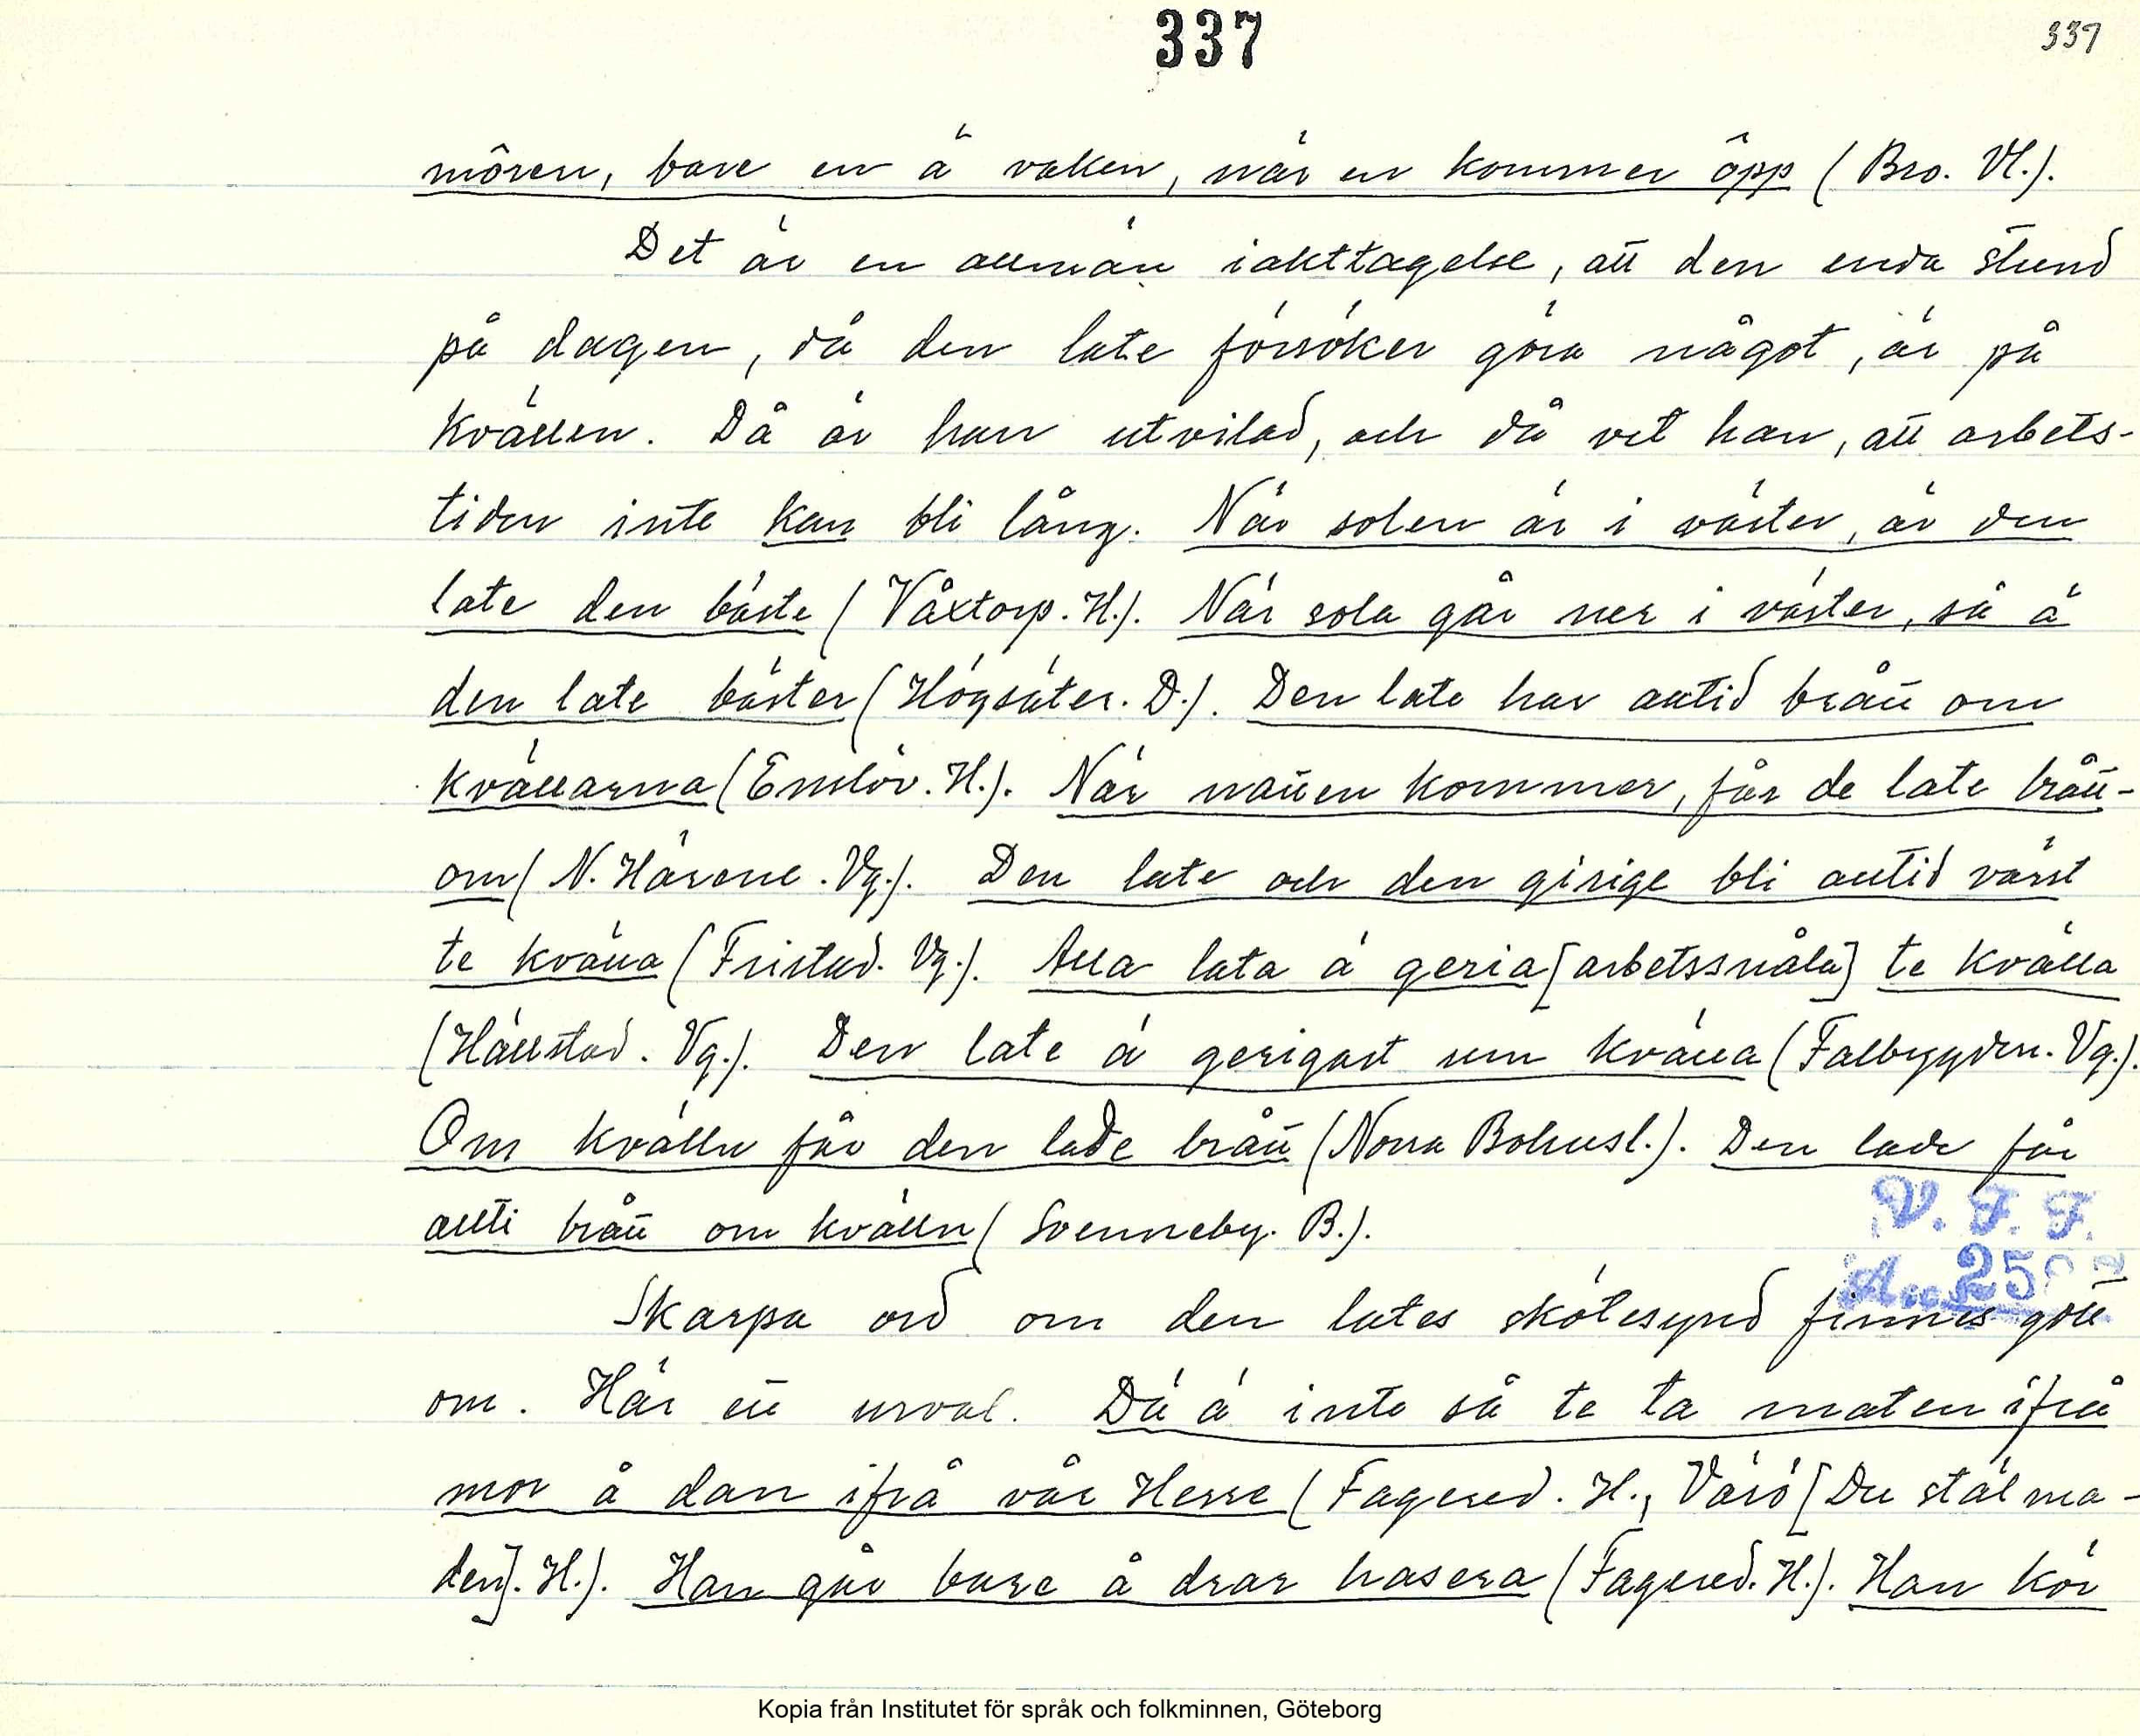 337
337
môren, bare en ä vaken, när en kommer ôpp (Bro. Vl.).
Det är en allmän iakttagelse, att den enda stund
på dagen, då den late försöker göra något, är på
kvällen. Då är han utvilad, och då vet han, att arbets-
tiden inte kan bli lång. När solen är i väster, är den
late den bäste (Våxtorp. H.). När sola går ner i väster, så ä
den late bäster (Högsäter. D.). Den late har alltid brått om
kvällarna (Enslöv. H.). När natten kommer, får de late brått-
om (N. Härene. Vg.). Den late och den girige bli alltid värst
te kvälla (Fristad. Vg.). Alla lata ä geria [arbetssnåla] te kvälla
(Hällstad. Vg.). Den late ä gerigast um kvälla (Falbygden. Vg.).
Om kvälln får den lade brått (Norra Bohusl.). Den lade får
allti brått om kvälln (Svenneby. B.).
V. F. F.
Skarpa ord om den lates skötesynd finnes gott
om. Här ett urval. Dä ä inte så te ta maten ifrå
mor å dan ifrå vår Herre (Fagered. H., Värö [Du stäl ma-
den]. H.). Han går bare å drar hasera (Fagered. H.). Han kör
Kopia från Institutet för språk och folkminnen, Göteborg